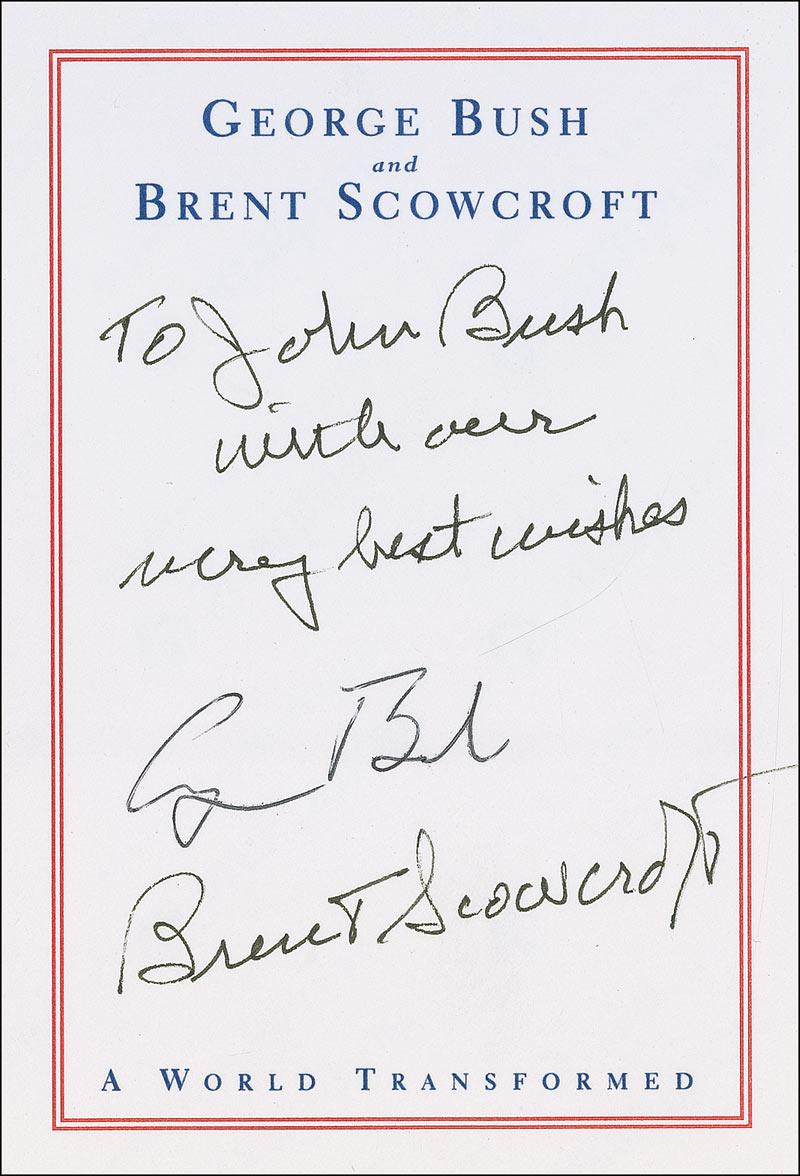 GEORGE BUSH
and
BRENT SCOWCROFT
To John Bush
with our
very best wishes
G Bush
Brent Scowcroft
A WORLD TRANSFORMED